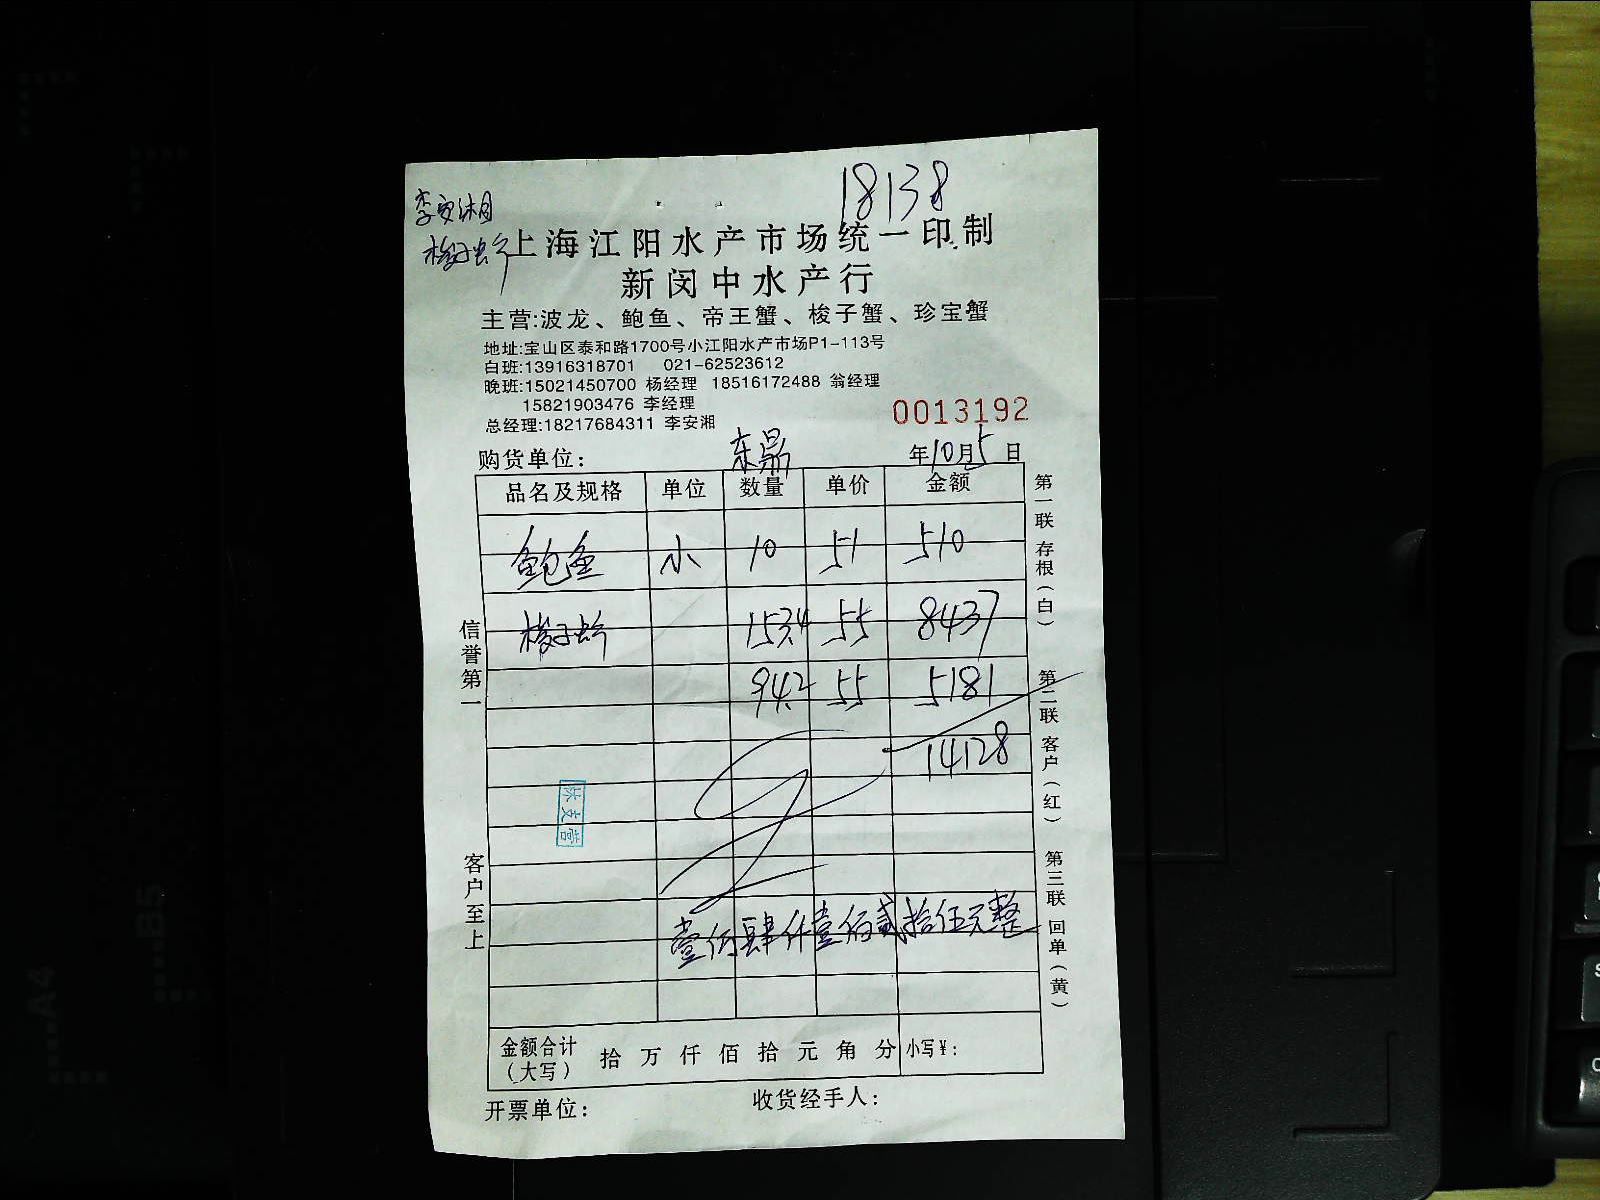 18138
李安湘
梭子蟹
上海江阳水产市场统一印制
新闵中水产行
主营:波龙、鲍鱼、帝王蟹、梭子蟹、珍宝蟹
地址:宝山区泰和路1700号小江阳水产市场P1-113号
白班:13916318701 021-62523612
晚班:15021450700 杨经理 18516172488 翁经理
15821903476 李经理
总经理:18217684311 李安湘
0013192
购货单位: 东鼎 年10月5日
品名及规格 单位 数量 单价 金额
鲍鱼 小 10 51 510
梭子蟹 153.4 55 8437
94.2 55 5181
14128
壹佰肆仟壹佰贰拾伍元整
金额合计(大写) 拾 万 仟 佰 拾 元 角 分 小写¥:
开票单位: 收货经手人:
信誉第一
客户至上
第一联存根(白)
第二联客户(红)
第三联回单(黄)